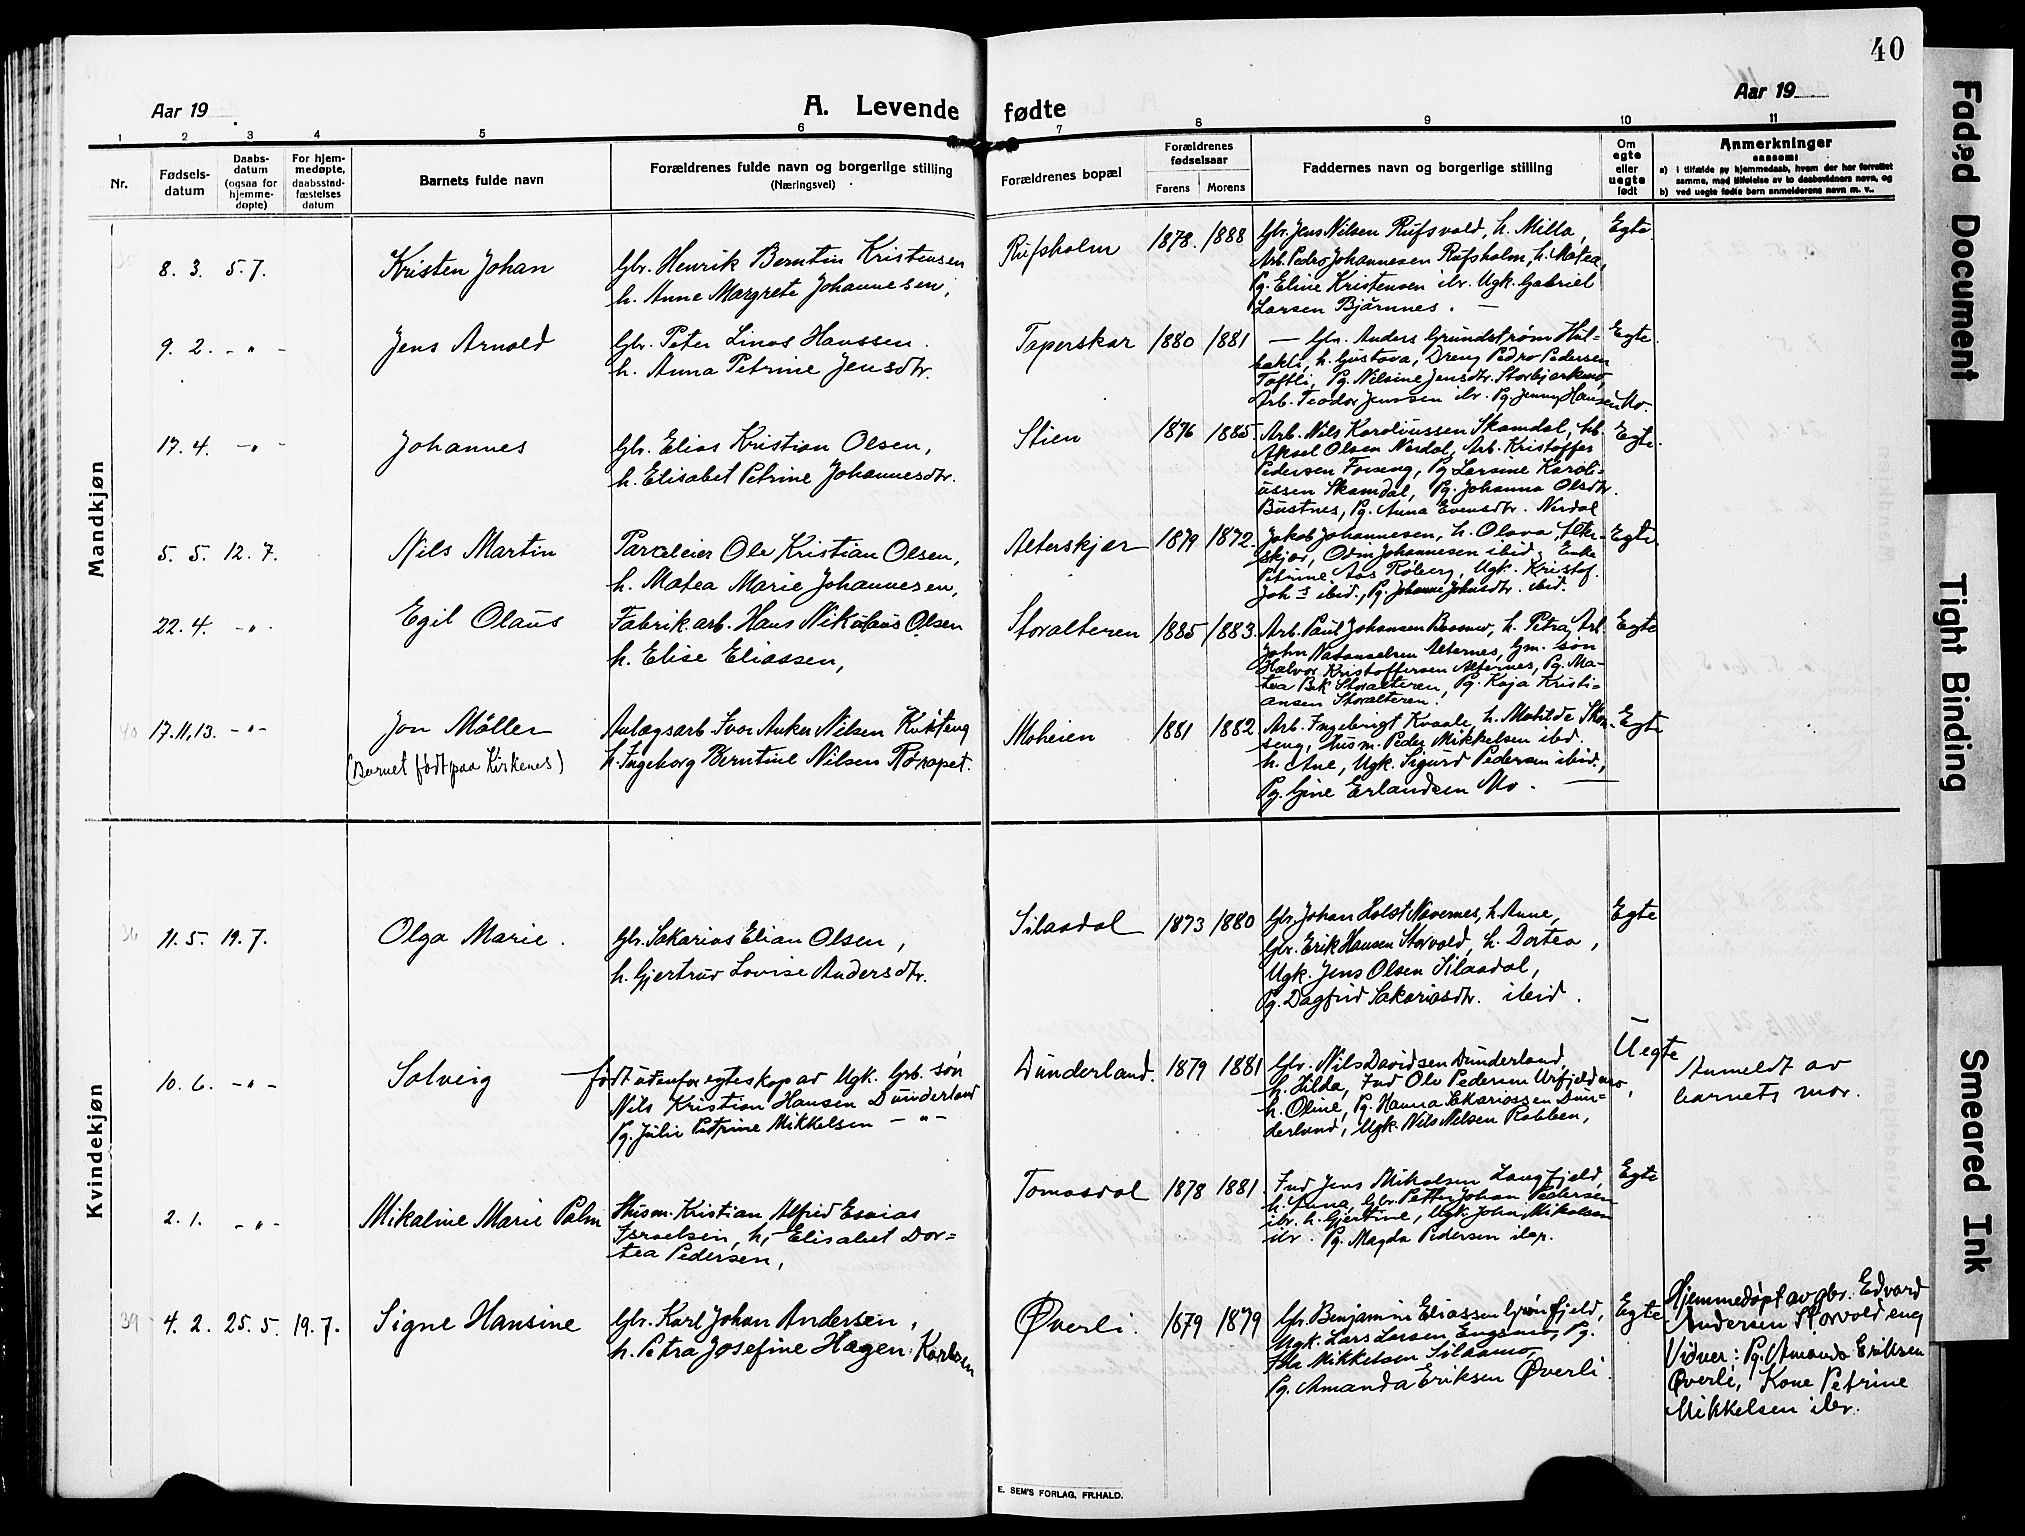 40
Aar 19
A. Levende fødte
Aar 19
1 2 3 4 5 6 7 8 9 10 11
Nr.
Fødsels-
datum
Daabs-
datum
(ogsaa for
hjemme-
døpte)
For hjem-
medøpte,
daabsstad-
fæstelses
datum
Barnets fulde navn
Forældrenes fulde navn og borgerlige stilling
(Næringsvei)
Forældrenes bopæl
Forældrenes
fødselsaar
Farens Morens
Faddernes navn og borgerlige stilling
Om
egte
eller
uegte
født
Anmerkninger
saasom:
a) i tilfælde av hjemmedaab, hvem der har forrettet
samme, med tilføielse av to daabsvidners navn, og
b) ved uegte fødte børn anmelderens navn m. v..
Mandkjøn
8. 3. 5. 7.
Kristen Johan
Gbr. Henrik Berntin Kristensen
h. Anne Margrete Johannesen,
Rufsholm
1878. 1888
Gbr. Jens Nilsen Rufsvold, h. Milla,
Arb. Pedro Johannesen Rufsholm, h. Matea,
Pg. Eline Kristensen ibr. Ugk. Gabriel
Larsen Bjørnnes. —
Egte.
9. 2. - " -
Jens Arnold
Gbr. Peter Linos Hanssen.
h. Anna Petrine Jensdtr.
Taperskar
1880 1881
— Gbr. Anders Grundstrøm Hul-
bakli, h. Gustava, Dreng Pedro Pedersen
Toftli, Pg. Nilsine Jensdtr. Storbjørkmo,
Arb. Teodor Jenssen ibr. Pg. Jenny Hansen Mo.
Egte.
17. 4. - " -
Johannes
Gbr. Elias Kristian Olsen,
h. Elisabet Petrine Johannesdtr.
Stien
1876 1885
Arb. Nils Karoliussen Skamdal, Arb.
Aksel Olsen Nerdal, Arb. Kristoffer
Pedersen Forseng, Pg. Larsine Karoli-
ussen Skamdal, Pg. Johanna Olsdtr.
Bustnes, Pg. Anna Evensdtr. Nerdal
Egte.
5. 5. 12. 7.
Nils Martin
Parceleier Ole Kristian Olsen,
h. Matea Marie Johannesen,
Alterskjær
1879 1872.
Jakob Johannesen, h. Olava, Alter-
skjær, Odin Johannesen ibid. Enke
Petrine Aas Røberg, Ugk. Kristof.
Joh s ibid., Pg. Johanne Johnsdtr. ibid.
Egte.
22. 4. - " -
Egil Olaus
Fabrik.arb. Hans Nikolaus Olsen
h. Elise Eliassen,
Storalteren
1885 1883.
Arb. Paul Johansen , h. Petra, Arb.
John Natanaelsen Alternes, Gm. søn
Halvor Kristoffersen Alternes, Pg. Ma-
tea Bek Storalteren, Pg. Kaja Kristi-
ansen Storalteren.
Egte
40 17.11.13. - " -
Jon Møller
(Barnet født paa Kirkenes)
Anlægsarb Ivar Anker Nilsen
h. Ingeborg Berntine Nilsen
Moheien
1881 1882
Arb. Ingebrigt Kvaale, h. Matilde Skon-
seng, Husm. Peder Mikkelsen ibid.
h. Ane, Ugk. Sigurd Pedersen ibid,
Pg. Gine Erlandsen Mo. —
Egte
Kvindekjøn
36 11. 5. 19. 7.
Olga Marie.
Gbr. Sakarias Elian Olsen,
h. Gjertrud Lovise Andersdtr.
Silaadal
1873 1880
Gbr. Johan Holst Nævernes, h. Anne,
Gbr. Erik Hansen Storvold, h. Dortea,
Ugk. Jens Olsen Silaadal,
Pg. Dagfrid Sakariasdtr. ibid.
Egte
10. 6. - " -
Solveig
født utenfor egteskap av Ugk. Grb. søn
Nils Kristian Hansen Dunderland
Pg. Julie Petrine Mikkelsen - " -
Dunderland.
1879 1881
Gbr. Nils Davidsen Dunderland,
h. Hilda, Ind Ole Pedersen Urfjeldmo,
h. Oline, Pg. Hanna Sakariassen Dun-
derland, Ugk. Nils Nilsen Rabben,
Uegte
Anmeldt av
barnets mor.
2. 1. - " -
Mikaline Marie Palm
Husm. Kristian Alfred Esaias
Israelsen, h. Elisabet Dor-
tea Pedersen,
Tomasdal
1878 1881.
Ind Jens Mikalsen Langfjeld,
h. Anna, Gbr. Petter Johan Pedersen
ibr. h. Gjertine, Ugk. John Mikalsen
ibr. Pg. Magda Pedersen ibr.
Egte
39 4. 2. 25. 5. 19. 7.
Signe Hansine
Gbr. Karl Johan Andersen,
h. Petra Josefine Hagen. Karlsen
Øverli.
1879 1879
Gbr. Benjamin Eliassen Grønfjeld,
Ugk. Lars Larsen Engsmo, Pg.
Ida Mikkelsen Silaamo,
Pg. Amanda Eriksen Øverli.
Egte
Hjemmedøpt av gbr. Edvard
Andersen Storvoldeng
Vidner: Pg. Amanda Eriksen
Øverli, Kone Petrine
Mikkelsen ibr.
E. SEM'S FORLAG, FR.HALD.
Faded Document
Tight Binding
Smeared Ink